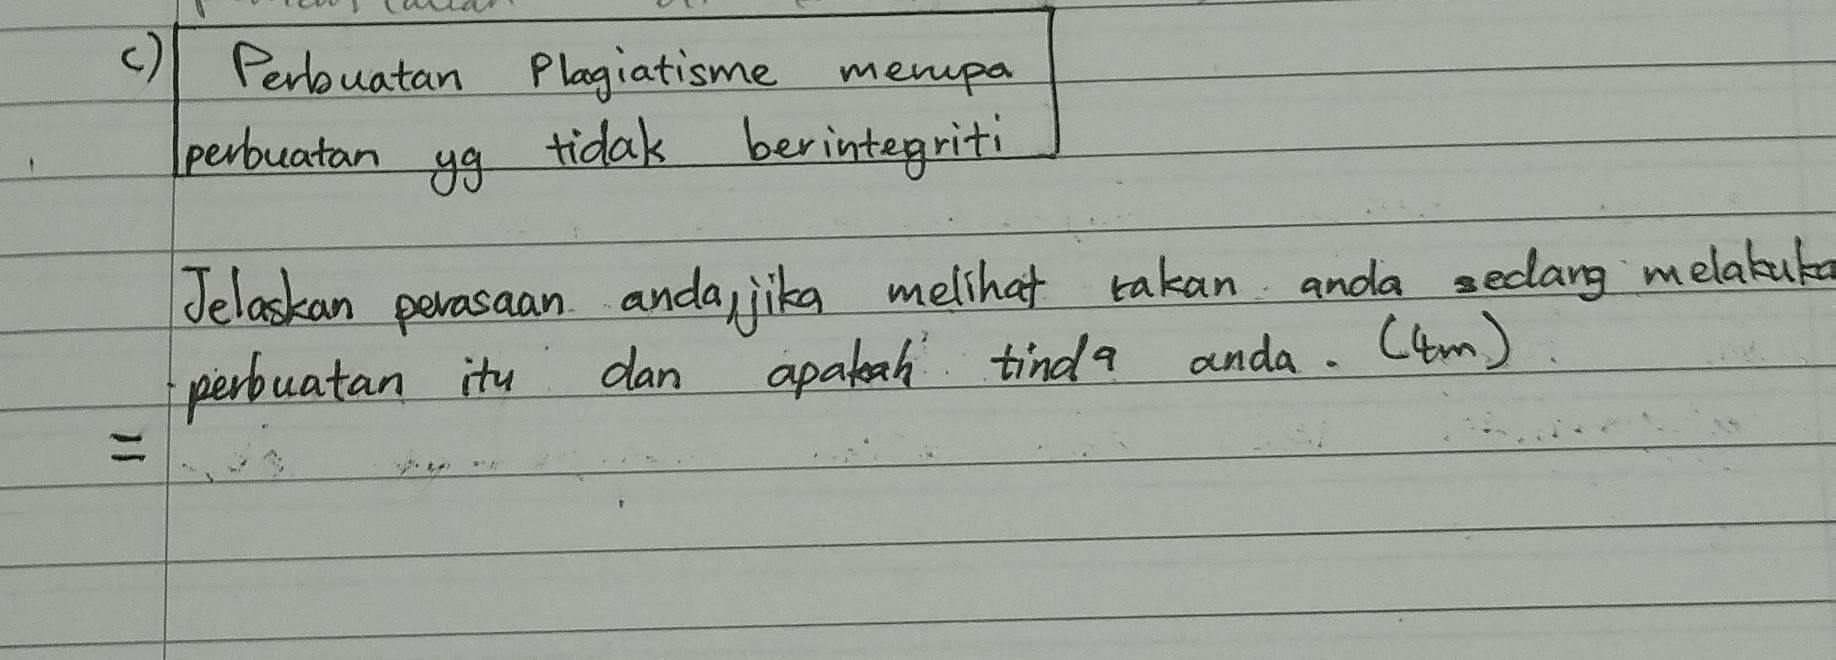 c) Perbuatan Plagiatisme merupa
perbuatan yg tidak berintegriti
Jelaskan perasaan anda, jika melihat rakan anda sedang melakuka
perbuatan itu dan apakah tind9 anda. (4m)
=